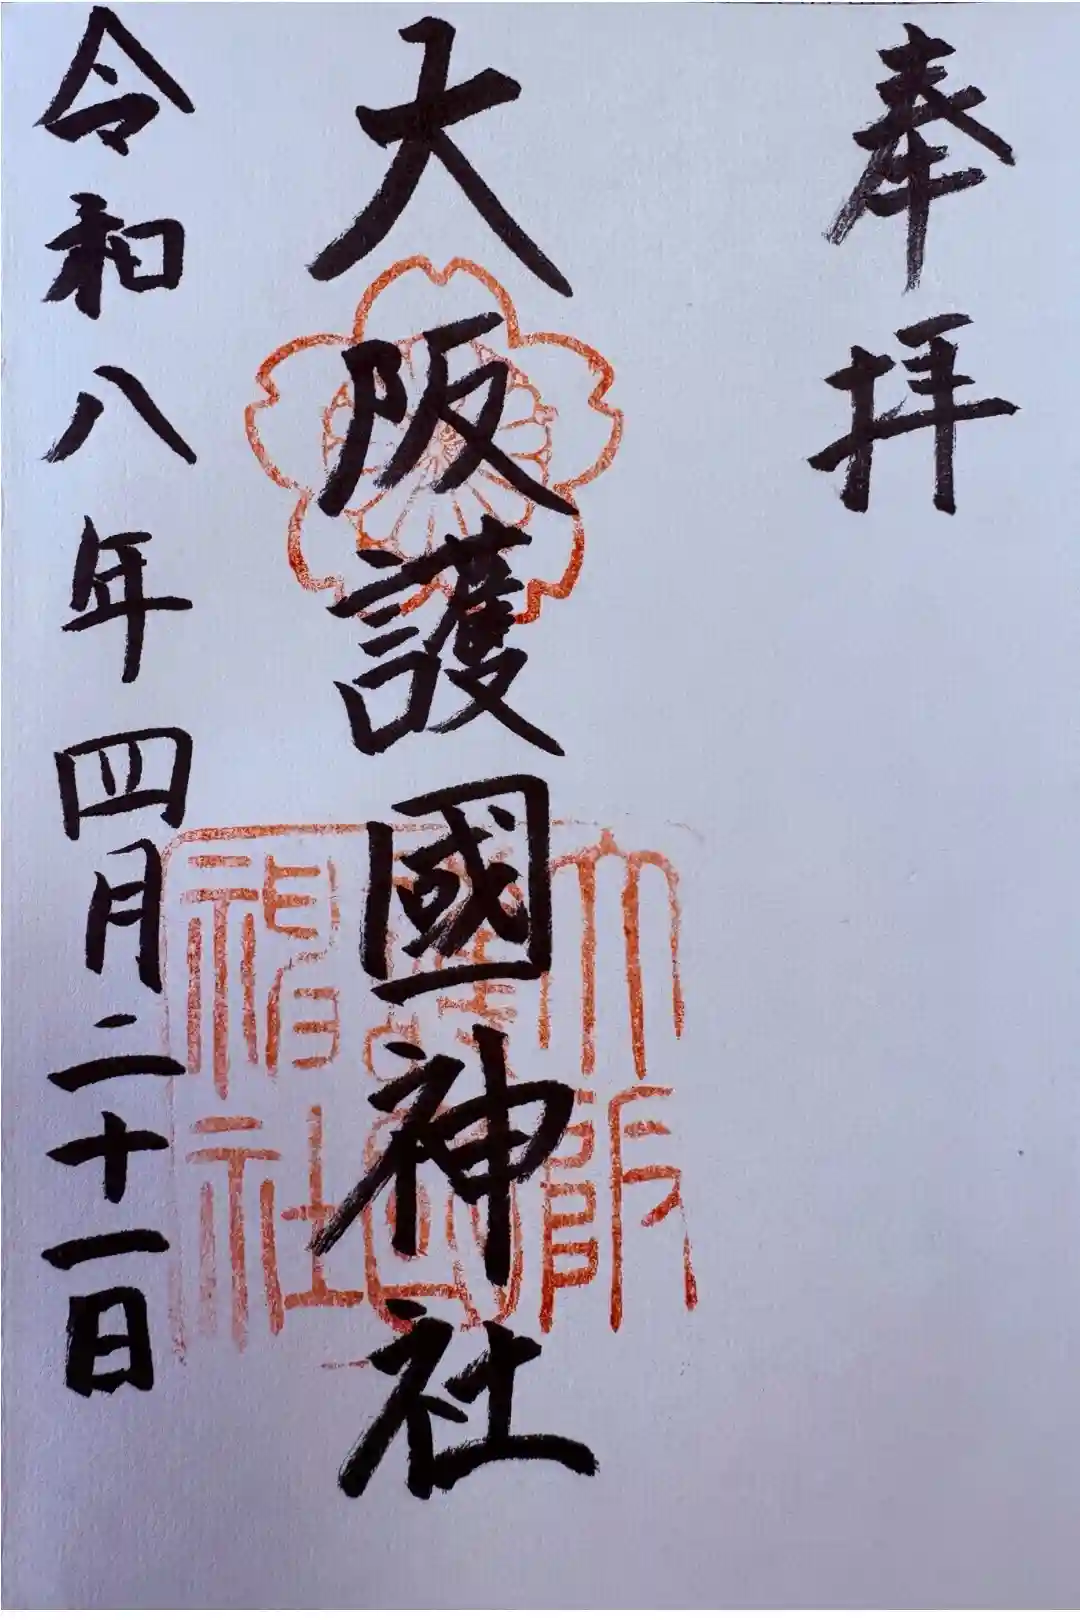 奉拝
大阪護國神社
令和八年四月二十一日
大阪
護國
神社